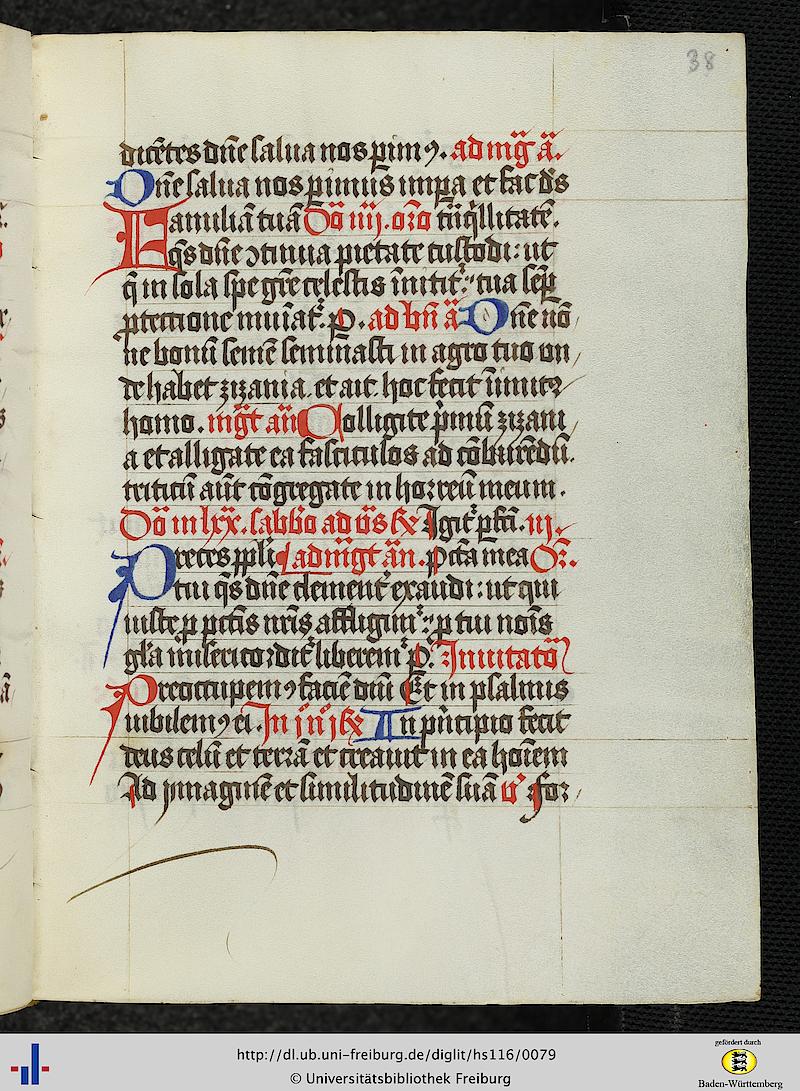 38
dicētes dn̄e salua nos ꝑim⁹. ad mg̅t a̅.
Dn̄e salua nos ꝑimus impa et fac ds̄
tͣnq̇llitatē. Dō iiij. or̄o
Familiā tuā
q̄s dn̄e ↄtinua pietate custodi: ut
q̄ in sola spe grē celestis īnitit᷑: tua sēꝑ
ꝓtectione muniat᷑. P. ad bn̄ a̅ Dn̄e nō
ne bonū semē seminasti in agro tuo vn
de habet zizania. et ait. hoc fecit inimic⁹
homo. mg̅t an̄ Colligite p̄mū zizani
a et alligate ea fasciculos ad cōburēdū.
triticū aūt cōgregate in horreū meum.
Dō in lxx. sabbo ad v̄s ꝶ Igit᷑ ꝑfci. iij.
Preces ppl̄i ad mg̅t an̄. Pctā mea Or̄.
tui q̄s dn̄e clement᷑ exaudi: ut qui
iuste ꝓ pctīs nr̄is affligim᷑: ꝓ tui nois̄
gl̄a misericordit᷑ liberem᷑ P. Inuitatō
Preoccupem⁹ faciē dn̄i Et in psalmis
iubilem⁹ ei. In j᷎ n᷎ j ꝶ In pͥncipio fecit
deus celū et terrā et creauit in ea hoīem
Ad ymaginē et similitudinē suā v̄ For
http://dl.ub.uni-freiburg.de/diglit/hs116/0079
© Universitätsbibliothek Freiburg
gefördert durch
Baden-Württemberg